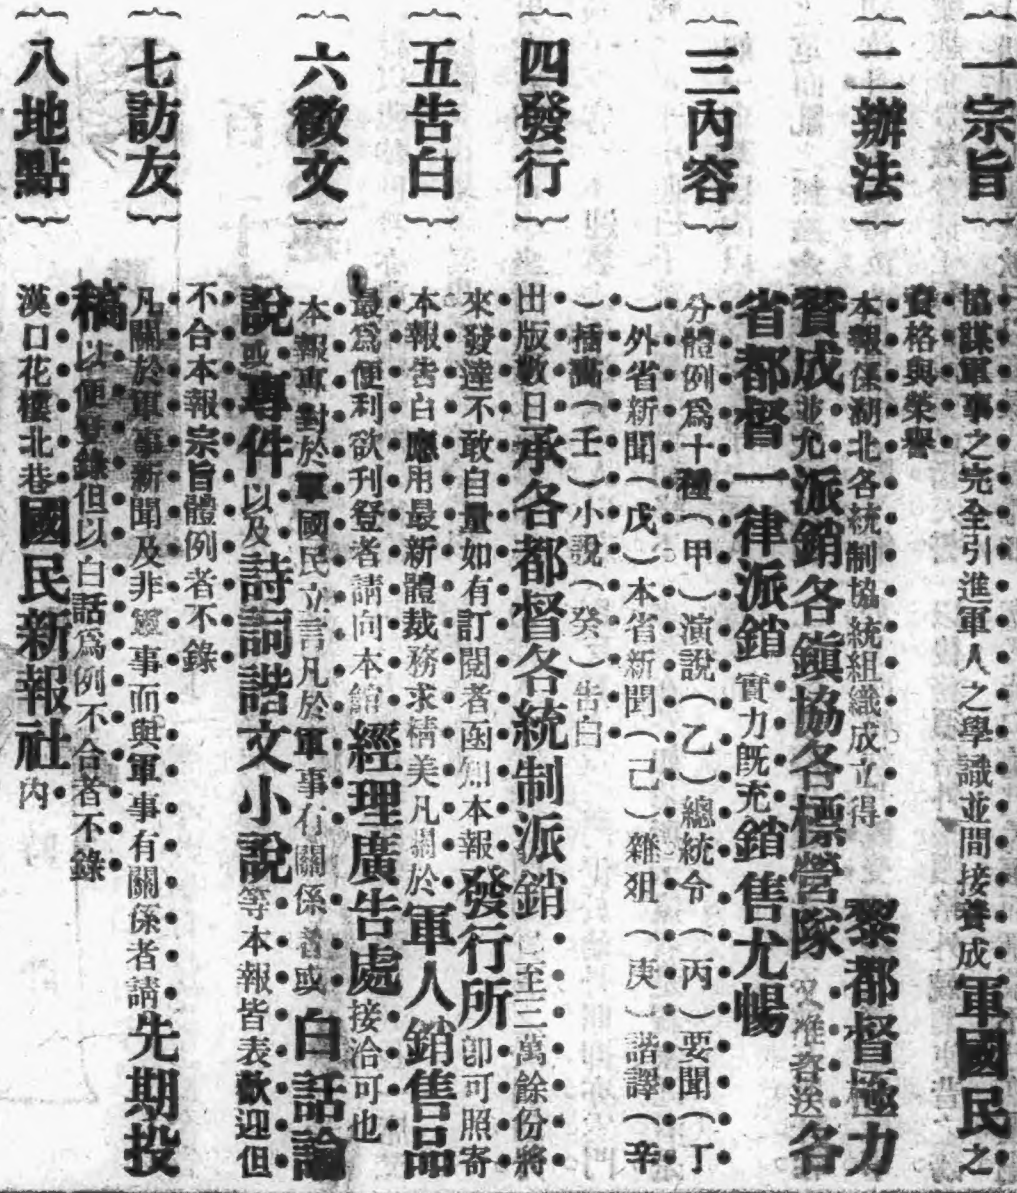 一宗旨
協謀軍事之完全引進軍人之學識並間接養成軍國民之
資格與榮譽
二辦法
本報係湖北各統制協統組織成立得 黎都督極力
贊成並允派銷各鎭協各標營隊又准咨送各
省都督一律派銷實力旣充銷售尤暢
三內容
分體例爲十種(甲)演說(乙)總統令(丙)要聞(丁
)外省新聞(戊)本省新聞(己)雜俎(庚)諧譯(辛
)插畵(壬)小說(癸)告白
四發行
出版數日承各都督各統制派銷已至三萬餘份將
來發達不敢自量如有訂閱者函知本報發行所卽可照寄
五告白
本報告白應用最新體裁務求精美凡關於軍人銷售品
最爲便利欲刊登者請向本館經理廣告處接洽可也
六徵文
本報專對於軍國民立言凡於軍事有關係者或白話論
說或專件以及詩詞諧文小說等本報皆表歡迎但
不合本報宗旨體例者不錄
七訪友
凡關於軍事新聞及非軍事而與軍事有關係者請先期投
稿以便登錄但以白話爲例不合者不錄
八地點
漢口花樓北巷國民新報社內